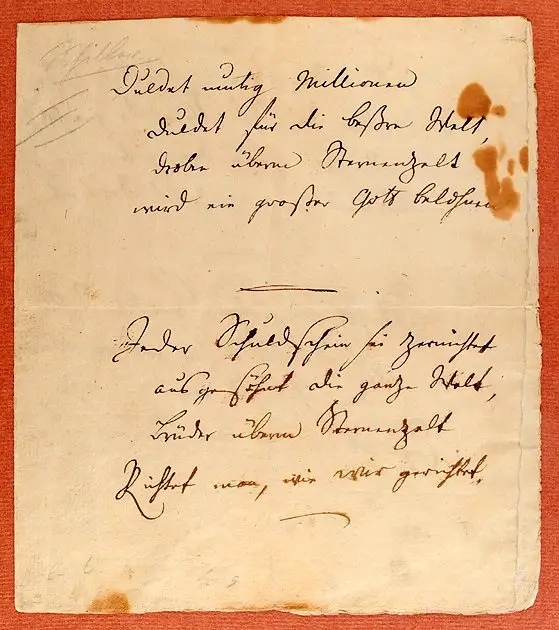 Schiller
Duldet mutig Millionen
duldet für die beßre Welt,
droben überm Sternenzelt
wird ein großer Gott belohnen
Jeder Schuldschein sei zernichtet
ausgesöhnt die ganze Welt,
Brüder überm Sternenzelt
Richtet man, wie wir gerichtet.